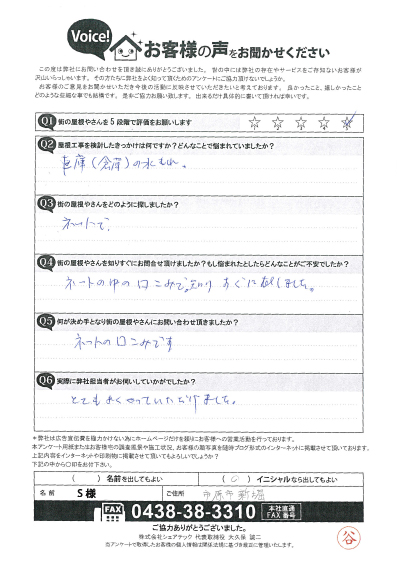 Voice!
お客様の声をお聞かせください
この度は弊社にお問い合わせを頂き誠にありがとうございました。世の中には弊社の存在やサービスをご存知ないお客様が
沢山いらっしゃいます。その方たちに弊社をよく知って頂くためのアンケートにご協力頂けないでしょうか。
お客様のご意見をお聞かせいただき今後の活動に反映させていただきたいと考えております。良かったこと、嬉しかったこと
どのような些細な事でも結構です。是非ご協力お願い致します。出来るだけ具体的に書いて頂ければ幸いです。
Q1 街の屋根やさんを5段階で評価をお願いします ☆ ☆ ☆ ☆ ☆
Q2 屋根工事を検討したきっかけは何ですか？どんなことで悩まれていましたか？
車庫(倉庫)の水もれ。
Q3 街の屋根やさんをどのように探しましたか？
ネットで、
Q4 街の屋根やさんを知りすぐにお問合せ頂けましたか？もし悩まれたとしたらどんなことがご不安でしたか？
ネットの中の口こみで。知り すぐに致しました。
Q5 何が決め手となり街の屋根やさんにお問い合わせ頂きましたか？
ネットの口こみです
Q6 実際に弊社担当者がお伺いしていかがでしたか？
とてもよくやっていただけました。
＊弊社は広告宣伝費を極力かけない為にホームページだけを頼りにお客様への営業活動を行っております。
本アンケート用紙またお客様宅の調査風景や施工状況、お客様の顔写真を随時ブログ形式のインターネットに掲載させて頂いております。
上記内容をインターネットや印刷物に掲載させて頂いてもよろしいでしょうか？
下記の中から〇印をお付下さい。
( ) 名前を出してもよい ( 〇 ) イニシャルなら出してもよい
名前 S 様 ご住所 市原市新堀
FAX 0438-38-3310 本社直通 FAX番号
ご協力ありがとうございました。
株式会社シェアテック 代表取締役 大久保 誠二
※アンケートで取得したお客様の個人情報は関係法規に基づき厳正に管理いたします。
谷